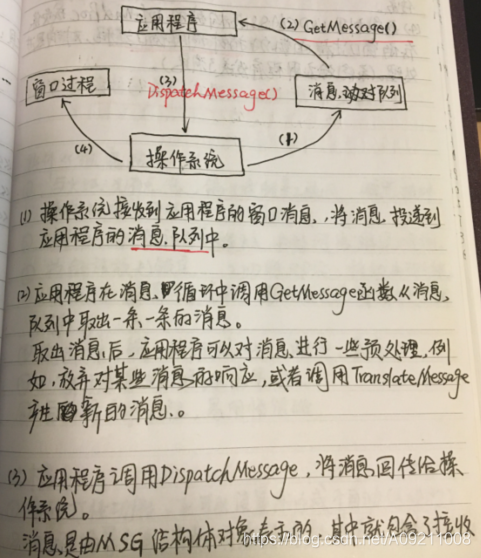 应用程序
(2) GetMessage()
(3)
DispatchMessage()
窗口过程
消息队列
(4)
(1)
操作系统
(1) 操作系统接收到应用程序的窗口消息,将消息投递到
应用程序的消息队列中。
(2) 应用程序在消息循环中调用GetMessage函数从消息
队列中取出一条一条的消息。
取出消息后,应用程序可以对消息进行一些预处理,例
如,放弃对某些消息的响应,或者调用TranslateMessage
产生新的消息。
(3) 应用程序调用DispatchMessage,将消息回传给操
作系统。
消息是由MSG结构体对象表示的,其中就包含了接收
https://blog.csdn.net/A09211008